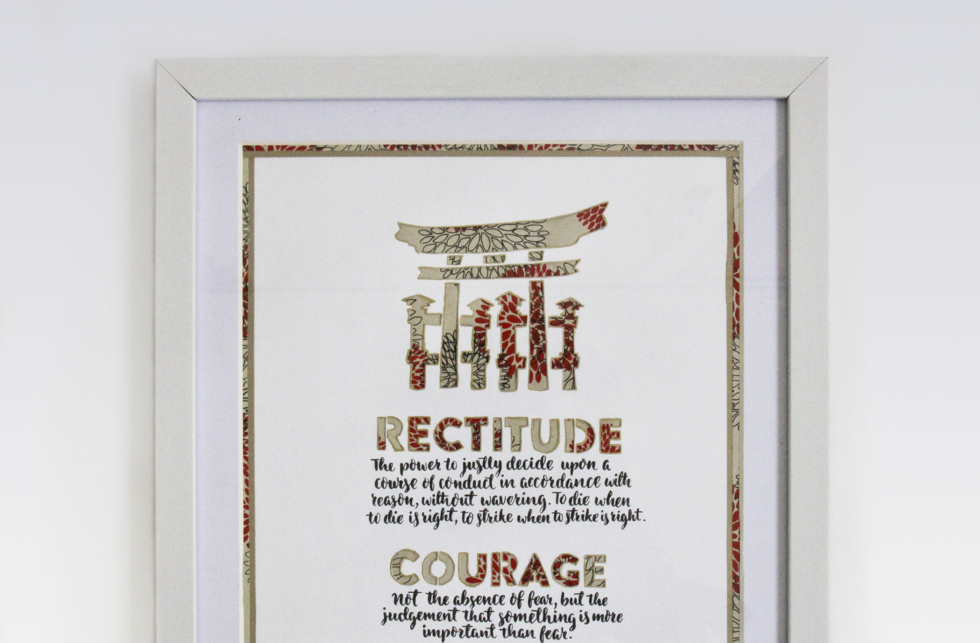 RECTITUDE
The power to justly decide upon a
course of conduct in accordance with
reason, without wavering. To die when
to die is right, to strike when to strike is right.
COURAGE
Not the absence of fear, but the
judgement that something is more
important than fear.